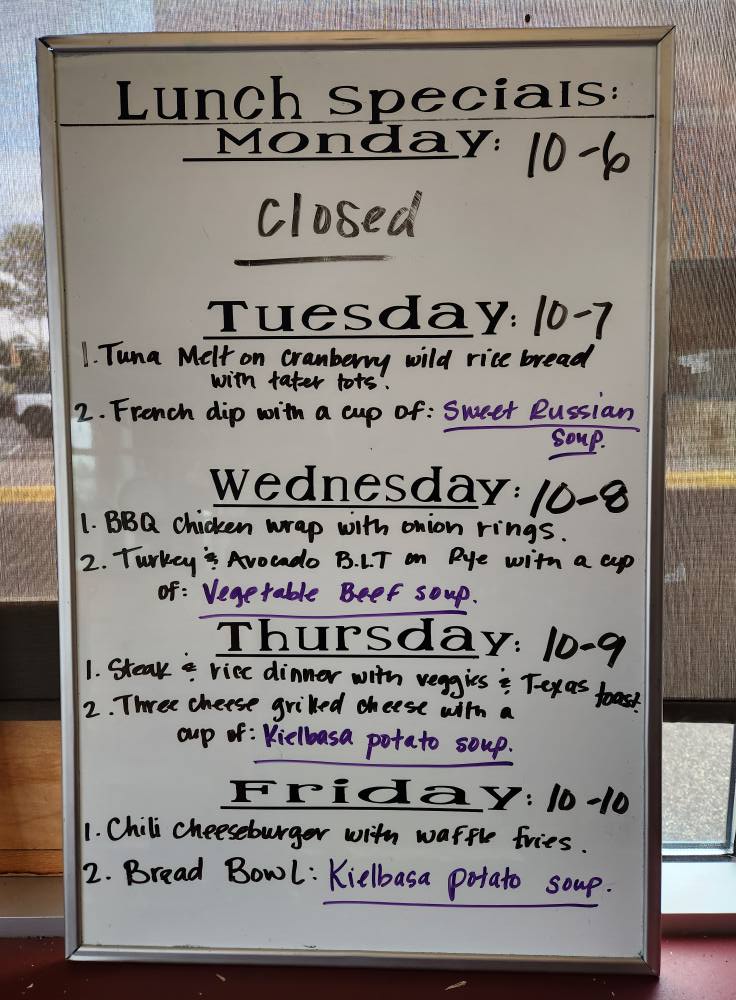 Lunch Specials:
Monday: 10-6
Closed
Tuesday: 10-7
1. Tuna Melt on cranberry wild rice bread
with tater tots.
2. French dip with a cup of: Sweet Russian
soup.
Wednesday: 10-8
1. BBQ chicken wrap with onion rings.
2. Turkey & Avocado B.L.T on Rye with a cup
of: Vegetable Beef soup.
Thursday: 10-9
1. Steak & rice dinner with veggies & Texas toast.
2. Three cheese grilled cheese with a
cup of: Kielbasa potato soup.
Friday: 10-10
1. Chili cheeseburger with waffle fries.
2. Bread Bowl: Kielbasa potato soup.